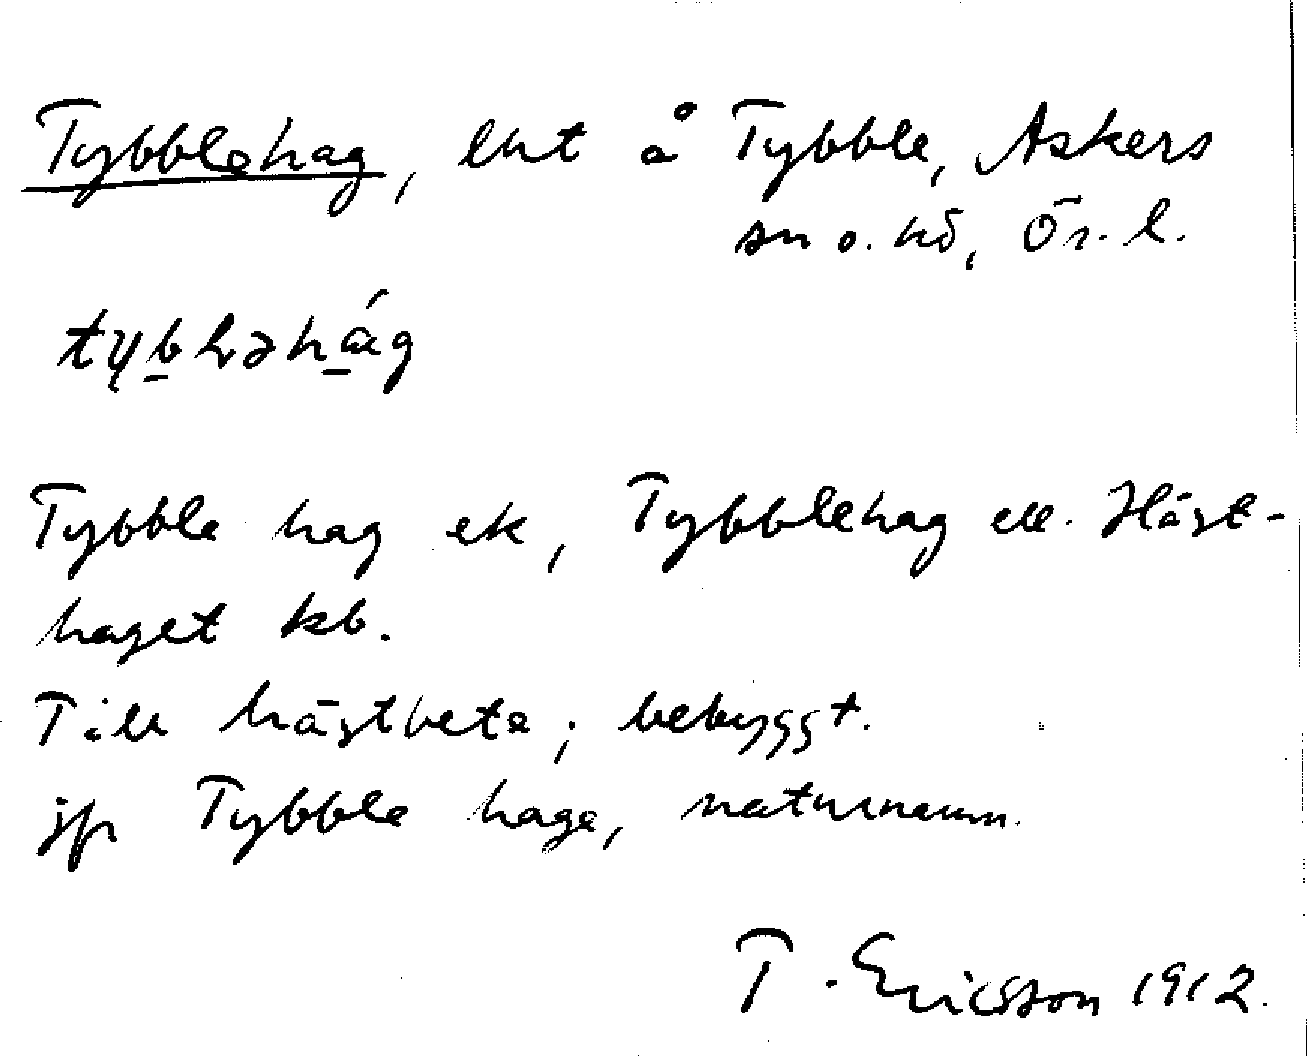 Tybblehag, lht å Tybble, Askers
sn o. hd, Ör. l.
Tybble hag ek, Tybblehag ell. Häst-
haget kb.
Till hästbete; bebyggt.
jfr Tybble hage, naturnamn.
T. Ericsson 1912.